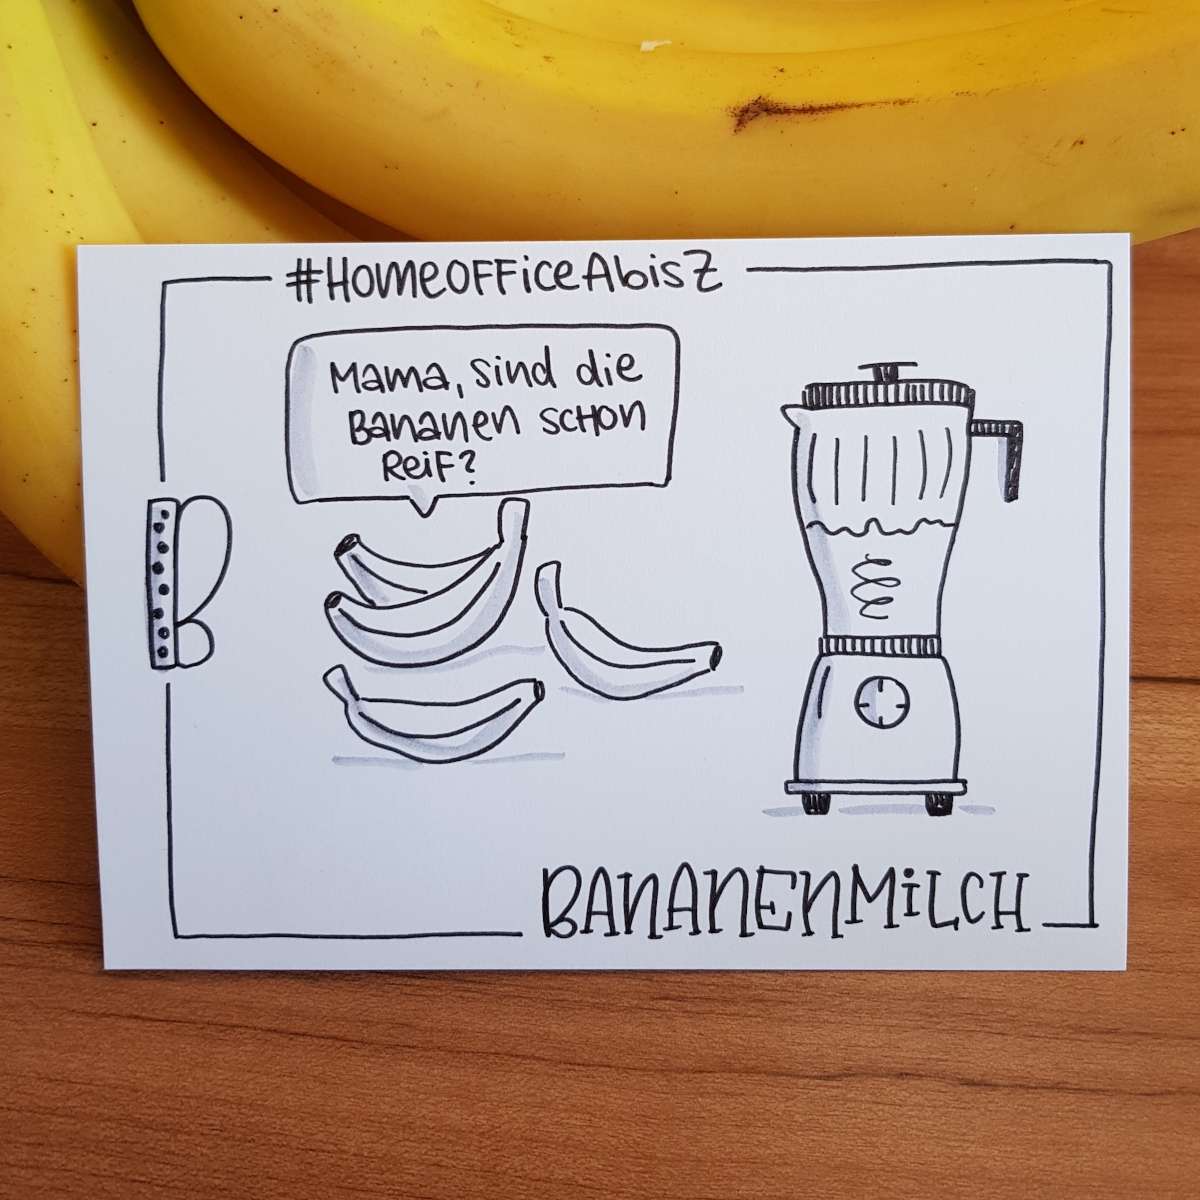 #HomeofficeAbisZ
Mama, sind die
Bananen schon
Reif?
B
BANANENMiLCH